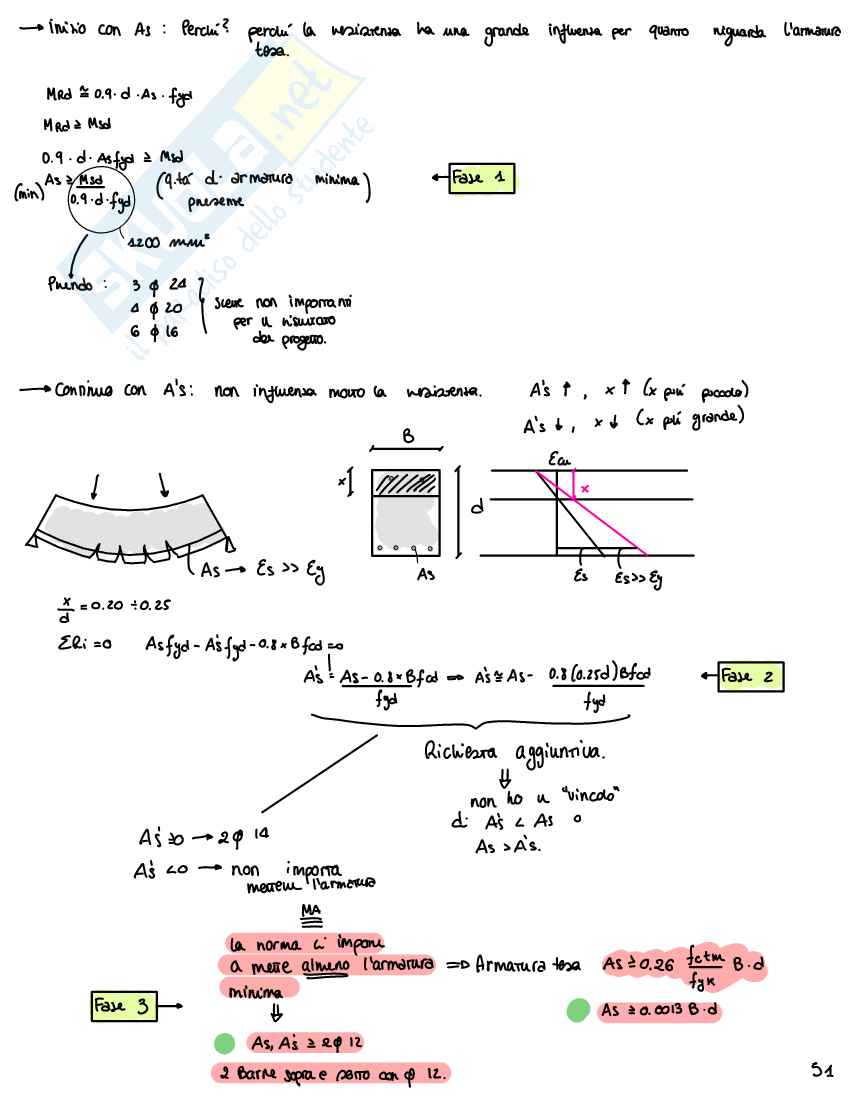 → inizio con As : Perché? perché la resistenza ha una grande influenza per quanto riguarda l'armatura
tesa.
MRd ≅ 0.9 · d · As · fyd
MRd ≥ Msd
0.9 · d · As fyd ≥ Msd
(min) As ≥ Msd / 0.9 · d · fyd (q.tà di armatura minima
presente)
← Fase 1
1200 mm²
Prendo : 3 ϕ 24
4 ϕ 20
6 ϕ 16
Scelte non importanti
per il risultato
del progetto.
→ Continua con A's : non influenza molto la resistenza.
A's ↑ , x ↑ (x più piccolo)
A's ↓ , x ↓ (x più grande)
B
x
d
As
εcu
x
εs
εs>>εy
As → εs >> εy
x/d = 0.20 ÷ 0.25
ΣRi = 0 As fyd - A's fyd - 0.8 x B fcd = 0
A's = As - 0.8 x B fcd / fyd ⇒ A's ≅ As - 0.8 (0.25d) B fcd / fyd
← Fase 2
Richiesta aggiuntiva.
⇓
non ho il "vincolo"
di A's < As o
As > A's.
A's ≥0 → 2ϕ 14
A's <0 → non importa
mettere l'armatura
MA
la norma ci impone
a mette almeno l'armatura
minima
⇒ Armatura tesa As ≥ 0.26 fctm / fyk B · d
As ≥ 0.0013 B · d
Fase 3 →
⇓
As, A's ≥ 2ϕ 12
2 Barre sopra e sotto con ϕ 12.
51
SKUOLA.net
il paradiso dello studente